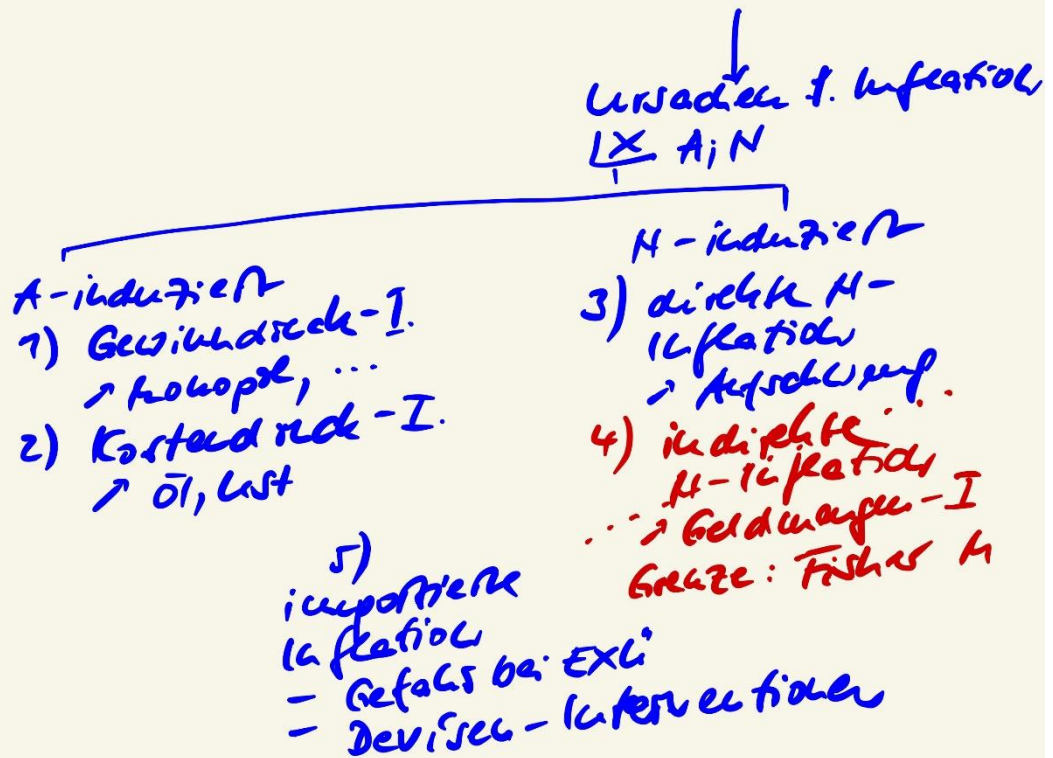 Ursachen f. Inflation
A; N
A-induziert
1) Gewinndruck-I.
↗ Monopol, ...
2) Kostendruck-I.
↗ Öl, USt
N-induziert
3) direkte N-
Inflation
↗ Aufschwung
4) indirekte ...
N-Inflation
... ↗ Geldmengen-I
Grenze: Fisher
5)
importierte
Inflation
- Gefahr bei EXÜ
- Devisen-Interventionen